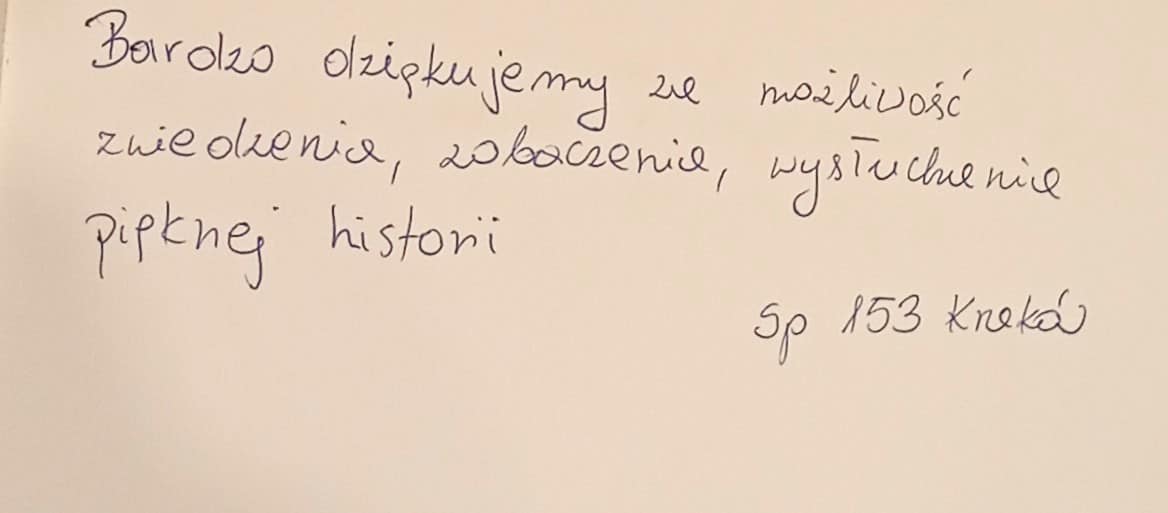 Bardzo dziękujemy za możliwość
zwiedzenia, zobaczenia, wysłuchania
pięknej historii
Sp 153 Kraków